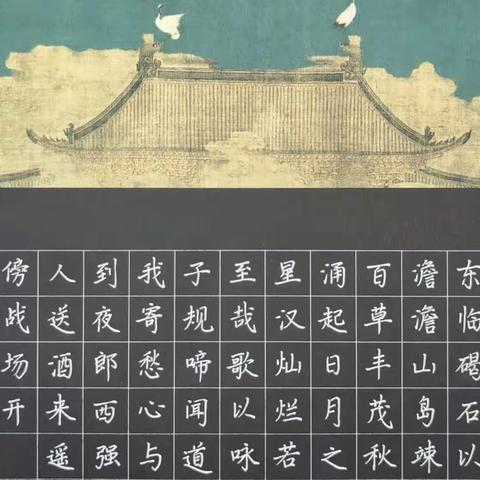 东临碣石以
澹澹山岛竦
百草丰茂秋
涌起日月之
星汉灿烂若
至哉歌以咏
子规啼闻道
我寄愁心与
到夜郎西强
人送酒来遥
傍战场开